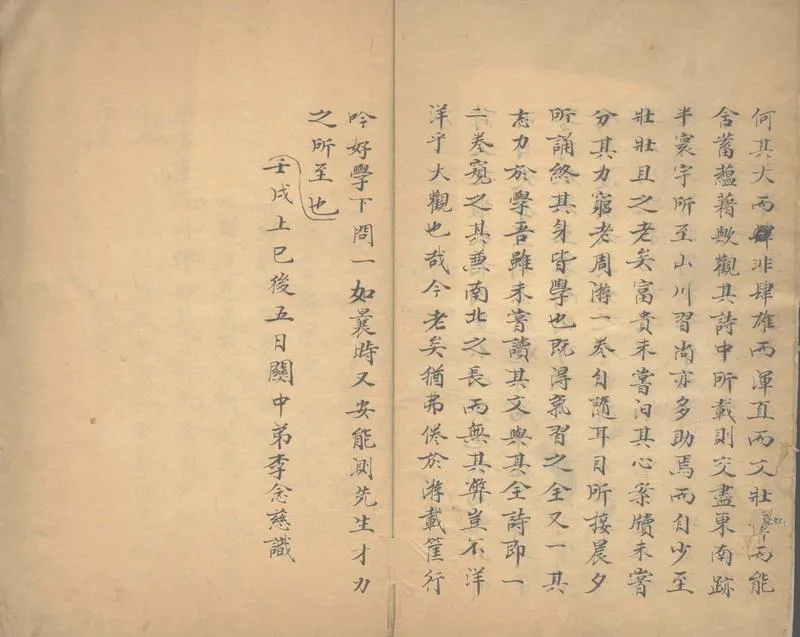 何其大而肆非肆雄而渾直而文壯而能
含蓄蘊藉歟觀其詩中所載則交盡東南跡
半寰宇所至山川習尚亦多助焉而自少至
壯壯且之老矣富貴未嘗汩其心案牘未嘗
分其力窮老周游一卷自隨耳目所接晨夕
所誦終其身皆學也既得氣習之全又一其
志力於學吾雖未嘗讀其文與其全詩即一
二卷窺之其兼南北之長而無其弊豈不洋
洋乎大觀也哉今老矣猶弗倦於游載筐行
吟好學下問一如曩時又安能測先生才力
之所至也
壬戌上巳後五日關中弟李念慈識